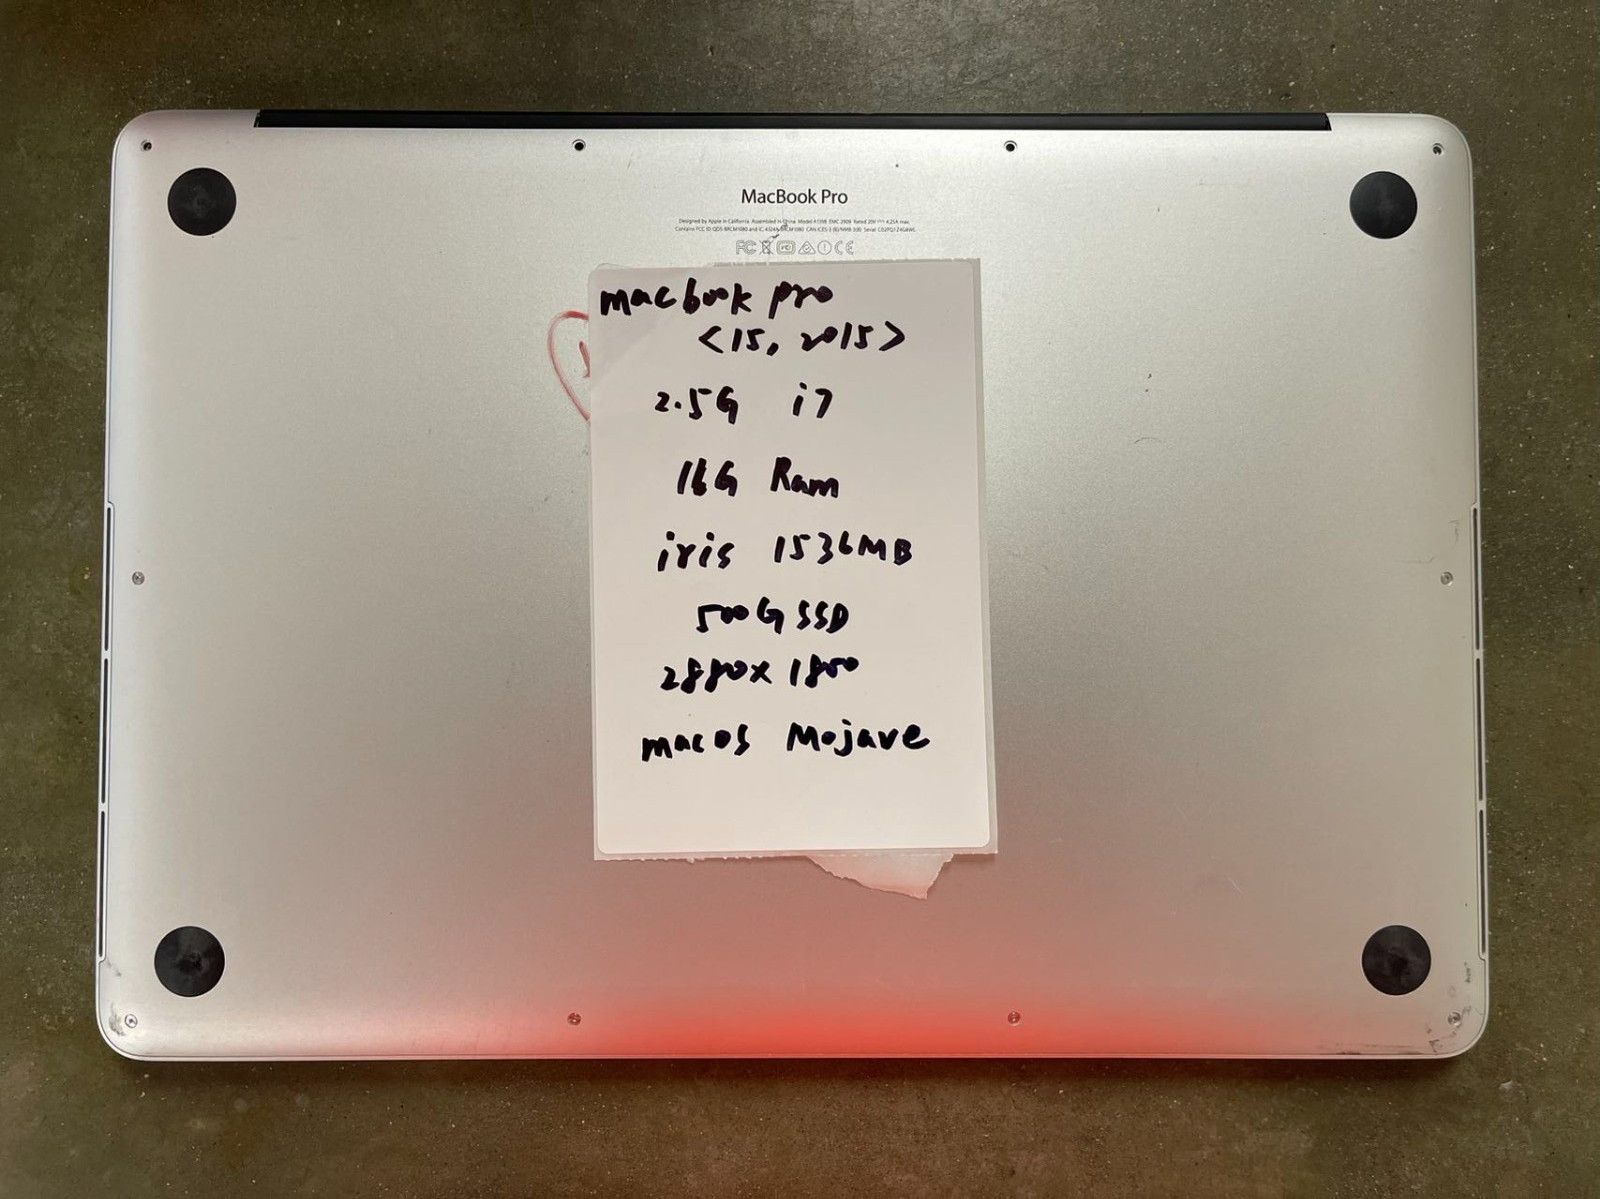 MacBook Pro
Designed by Apple in California Assembled in China Model A1398 EMC 2909 Rated 20V 4.25A max.
Contains FCC ID QDS-BRCM1080 and IC: 4324A-BRCM1080 CAN ICES-3 (B)/NMB-3(B) Serial
macbook pro
<15, 2015>
2.5G i7
16G Ram
iris 1536MB
500G SSD
2880x1800
macos Mojave